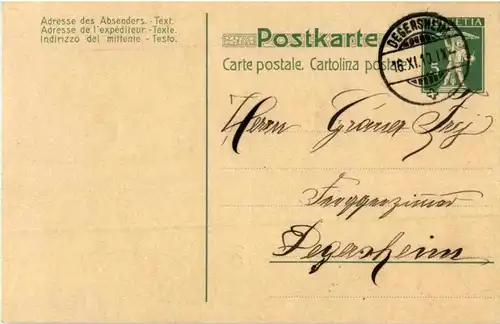 Adresse des Absenders. - Text.
Adresse de l'expéditeur. - Texte.
Indirizzo del mittente - Testo.
Postkarte
Carte postale. Cartolina postale
DEGERSHEIM
16.XI.10.IX
HELVETIA
5
Herrn
Degersheim